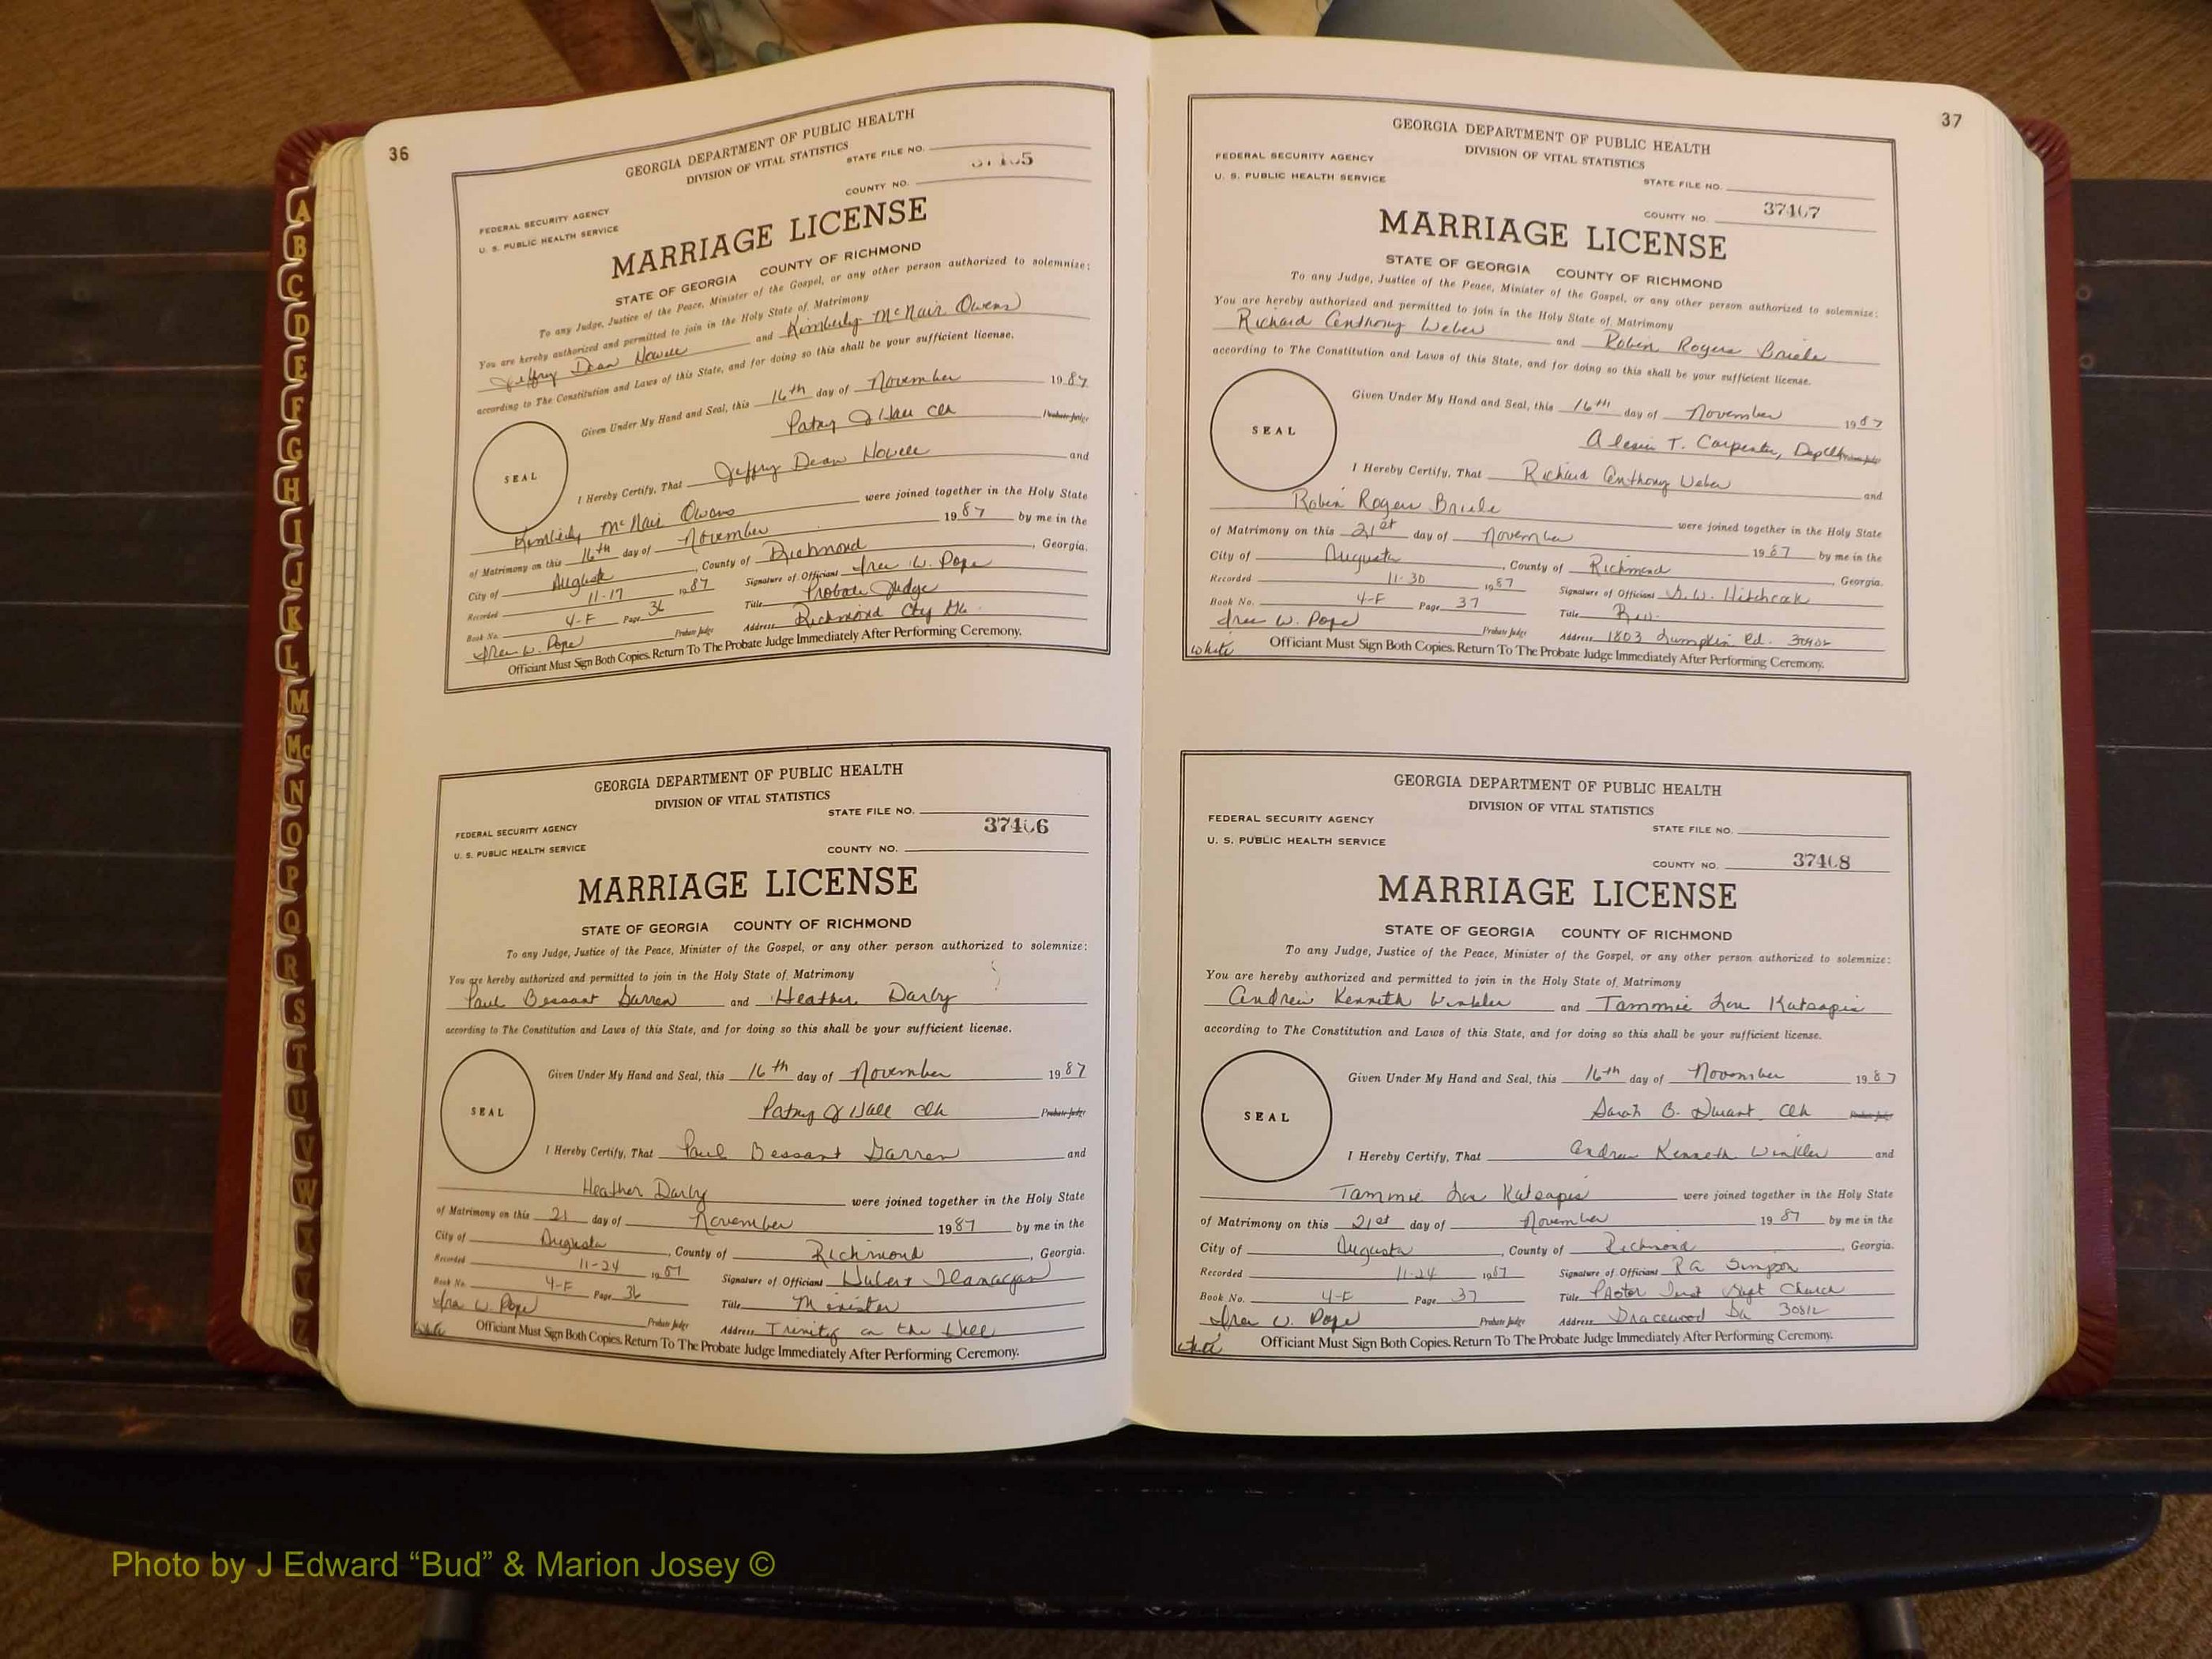 36
GEORGIA DEPARTMENT OF PUBLIC HEALTH
DIVISION OF VITAL STATISTICS
STATE FILE NO.
COUNTY NO.
FEDERAL SECURITY AGENCY
U. S. PUBLIC HEALTH SERVICE
MARRIAGE LICENSE
STATE OF GEORGIA COUNTY OF RICHMOND
To any Judge, Justice of the Peace, Minister of the Gospel, or any other person authorized to solemnize:
You are hereby authorized and permitted to join in the Holy State of Matrimony
Jeffry Dean Howell and Kimberly McNair Owens
according to The Constitution and Laws of this State, and for doing so this shall be your sufficient license.
Given Under My Hand and Seal, this 16th day of November 1987
Patsy J Hall Clk Probate Judge
SEAL
I Hereby Certify, That Jeffry Dean Howell and
Kimberly McNair Owens were joined together in the Holy State
of Matrimony on this 16th day of November 1987 by me in the
City of Augusta, County of Richmond, Georgia.
Recorded 11-17 1987 Signature of Officiant Ira W. Pope
Book No. 4-F Page 36 Title Probate Judge
Ira W. Pope Probate Judge Address Richmond Cty Ga.
Officiant Must Sign Both Copies. Return To The Probate Judge Immediately After Performing Ceremony.
GEORGIA DEPARTMENT OF PUBLIC HEALTH
DIVISION OF VITAL STATISTICS
STATE FILE NO.
37406
FEDERAL SECURITY AGENCY
U. S. PUBLIC HEALTH SERVICE
COUNTY NO.
MARRIAGE LICENSE
STATE OF GEORGIA COUNTY OF RICHMOND
To any Judge, Justice of the Peace, Minister of the Gospel, or any other person authorized to solemnize:
You are hereby authorized and permitted to join in the Holy State of Matrimony
Paul Bessant Garren and Heather Darby
according to The Constitution and Laws of this State, and for doing so this shall be your sufficient license.
Given Under My Hand and Seal, this 16th day of November 1987
Patsy J Hall Clk Probate Judge
SEAL
I Hereby Certify, That Paul Bessant Garren and
Heather Darby were joined together in the Holy State
of Matrimony on this 21 day of November 1987 by me in the
City of Augusta, County of Richmond, Georgia.
Recorded 11-24 1987 Signature of Officiant Hubert Flanagan
Book No. 4-F Page 36 Title Minister
Ira W. Pope Probate Judge Address Trinity on the Hill
White Officiant Must Sign Both Copies. Return To The Probate Judge Immediately After Performing Ceremony.
37
GEORGIA DEPARTMENT OF PUBLIC HEALTH
DIVISION OF VITAL STATISTICS
FEDERAL SECURITY AGENCY
U. S. PUBLIC HEALTH SERVICE
STATE FILE NO.
COUNTY NO. 37407
MARRIAGE LICENSE
STATE OF GEORGIA COUNTY OF RICHMOND
To any Judge, Justice of the Peace, Minister of the Gospel, or any other person authorized to solemnize:
You are hereby authorized and permitted to join in the Holy State of Matrimony
Richard Anthony Weber and Robin Rogers
according to The Constitution and Laws of this State, and for doing so this shall be your sufficient license.
Given Under My Hand and Seal, this 16th day of November 1987
T. Carpenter, Probate Judge
SEAL
I Hereby Certify, That Richard Anthony Weber and
Robin Rogers were joined together in the Holy State
of Matrimony on this 21st day of November 1987 by me in the
City of Augusta, County of Richmond Georgia.
Recorded 11-30 1987 Signature of Officiant Hitchcock
Book No. 4-F Page 37 Title Rev.
Ira W. Pope Probate Judge Address 1803 Lumpkin Rd.
White Officiant Must Sign Both Copies. Return To The Probate Judge Immediately After Performing Ceremony.
GEORGIA DEPARTMENT OF PUBLIC HEALTH
DIVISION OF VITAL STATISTICS
FEDERAL SECURITY AGENCY
U. S. PUBLIC HEALTH SERVICE
STATE FILE NO.
COUNTY NO. 37408
MARRIAGE LICENSE
STATE OF GEORGIA COUNTY OF RICHMOND
To any Judge, Justice of the Peace, Minister of the Gospel, or any other person authorized to solemnize:
You are hereby authorized and permitted to join in the Holy State of Matrimony
Andrew Kenneth Winkler and Tammie Lou Katsapis
according to The Constitution and Laws of this State, and for doing so this shall be your sufficient license.
Given Under My Hand and Seal, this 16th day of November 1987
Sarah B. Clk Probate Judge
SEAL
I Hereby Certify, That Andrew Kenneth Winkler and
Tammie Lou Katsapis were joined together in the Holy State
of Matrimony on this 21st day of November 1987 by me in the
City of Augusta, County of Richmond, Georgia.
Recorded 11-24 1987 Signature of Officiant Simpson
Book No. 4-F Page 37 Title Pastor Bapt Church
Ira W. Pope Probate Judge Address Gracewood Ga 30812
Officiant Must Sign Both Copies. Return To The Probate Judge Immediately After Performing Ceremony.
A
B
C
D
E
F
G
H
I
J
K
L
M
Mc
N
O
P
Q
R
S
T
U
V
W
Z
Photo by J Edward “Bud” & Marion Josey ©